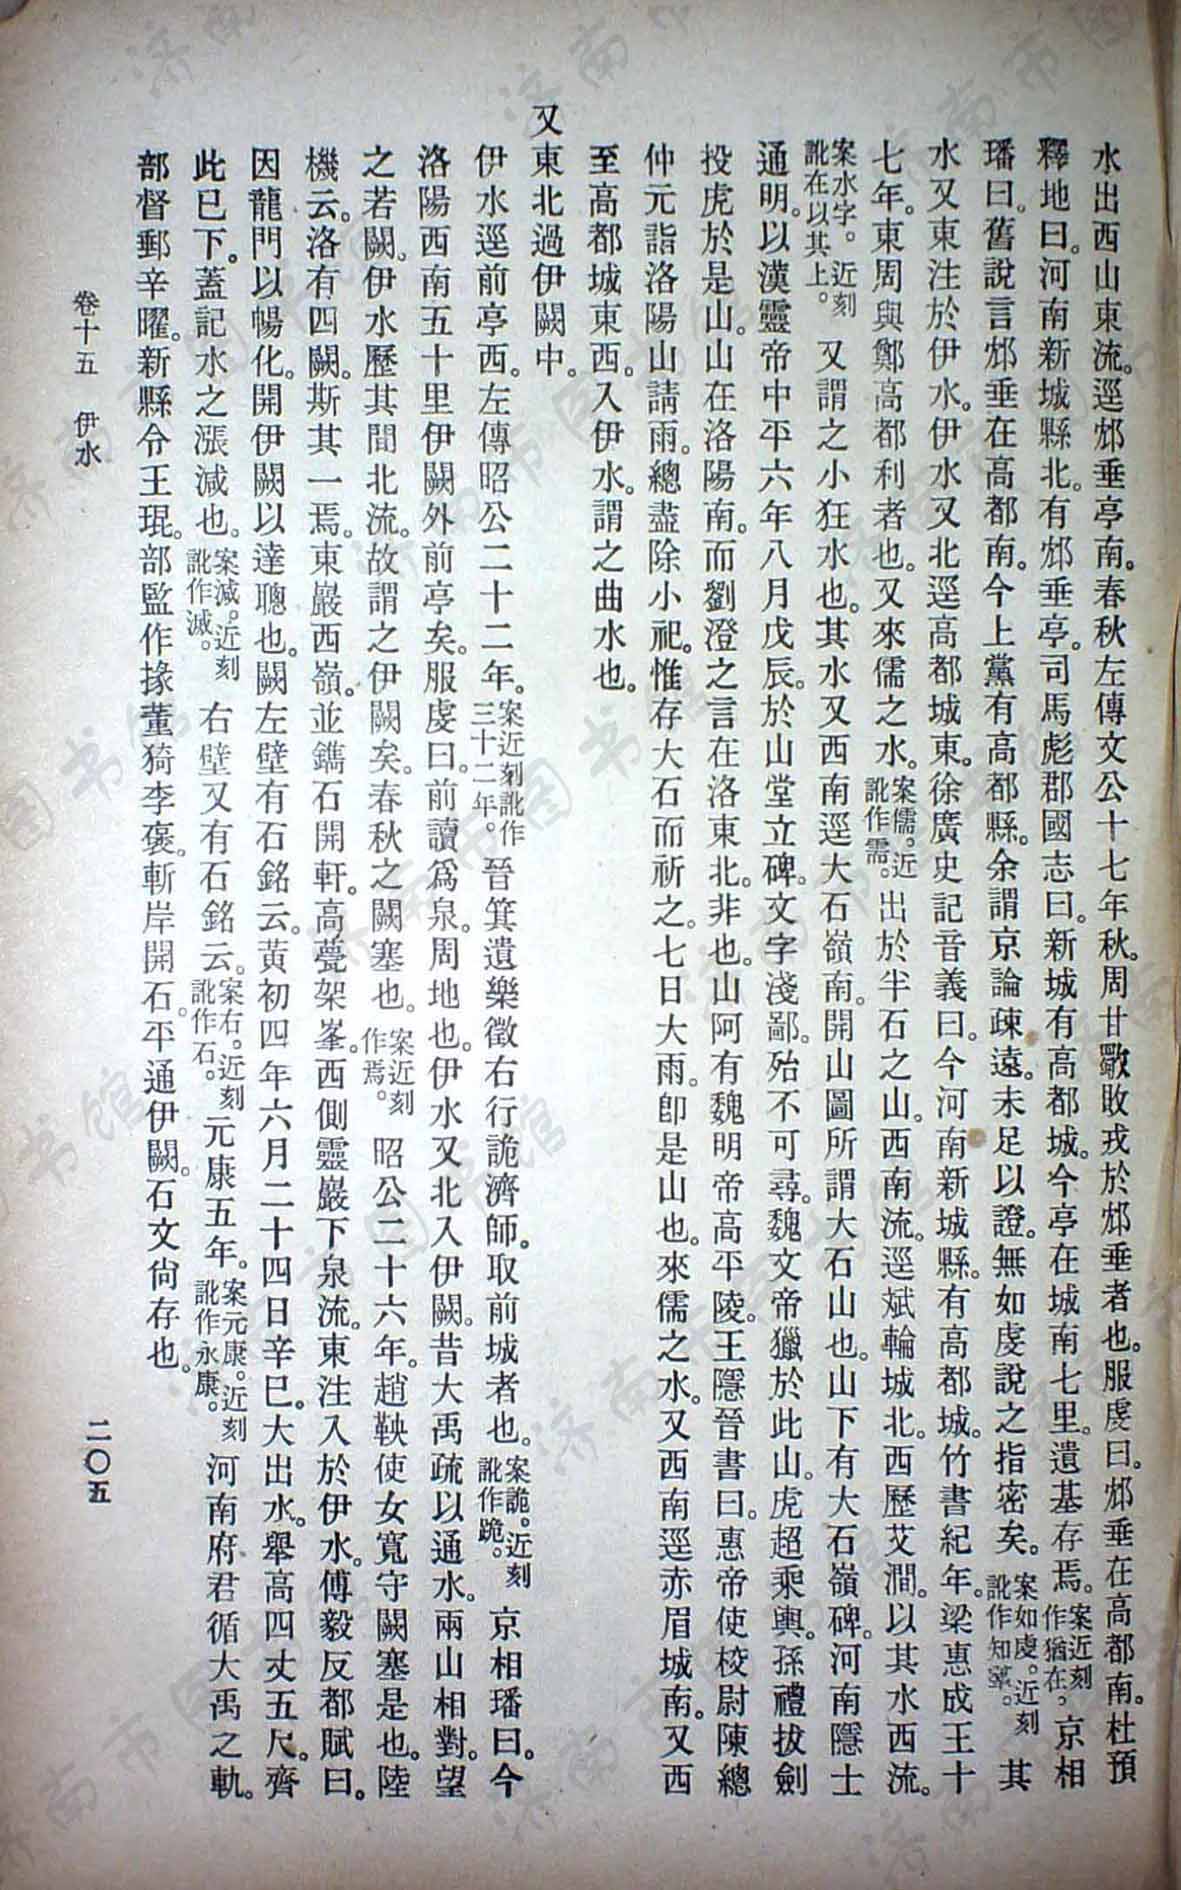 水出西山東流。逕邥垂亭南。春秋左傳文公十七年秋。周甘歜敗戎於邥垂者也。服虔曰。邥垂在高都南。杜預
釋地曰。河南新城縣北。有邥垂亭。司馬彪郡國志曰。新城有高都城。今亭在城南七里。遺基存焉。案近刻作猶在。京相
璠曰。舊說言邥垂在高都南。今上黨有高都縣。余謂京論疎遠。未足以證。無如虔說之指密矣。案如虔。近刻訛作知 其
水又東注於伊水。伊水又北逕高都城東。徐廣史記音義曰。今河南新城縣。有高都城。竹書紀年。梁惠成王十
七年。東周與鄭高都利者也。又來儒之水。案儒。近訛作需。出於半石之山。西南流。逕斌輪城北。西歷艾澗。以其水西流。
案水字。近刻訛在以其上。又謂之小狂水也。其水又西南逕大石嶺南。開山圖所謂大石山也。山下有大石嶺碑。河南隱士
通明。以漢靈帝中平六年八月戊辰。於山堂立碑。文字淺鄙。殆不可尋。魏文帝獵於此山。虎超乘輿。孫禮拔劍
投虎於是山。山在洛陽南。而劉澄之言在洛東北。非也。山阿有魏明帝高平陵。王隱晉書曰。惠帝使校尉陳總
仲元詣洛陽山請雨。總盡除小祀。惟存大石而祈之。七日大雨。卽是山也。來儒之水。又西南逕赤眉城南。又西
至高都城東西。入伊水。謂之曲水也。
又東北過伊闕中。
伊水逕前亭西。左傳昭公二十二年。案近刻訛作三十二年。晉箕遺樂徵右行詭濟師。取前城者也。案詭。近刻訛作跪。京相璠曰。今
洛陽西南五十里伊闕外前亭矣。服虔曰。前讀爲泉。周地也。伊水又北入伊闕。昔大禹疏以通水。兩山相對。望
之若闕。伊水歷其間北流。故謂之伊闕矣。春秋之闕塞也。案近刻作焉。昭公二十六年。趙鞅使女寬守闕塞是也。陸
機云。洛有四闕。斯其一焉。東巖西嶺。並鐫石開軒。高甍架峯。西側靈巖下泉流。東注入於伊水。傅毅反都賦曰。
因龍門以暢化。開伊闕以達聰也。闕左壁有石銘云。黃初四年六月二十四日辛巳。大出水。舉高四丈五尺。齊
此已下。蓋記水之漲減也。案減。近刻訛作滅。右壁又有石銘云。案右。近刻訛作石。元康五年。案元康。近刻訛作永康。河南府君循大禹之軌。
部督郵辛曜。新縣令王琨。部監作掾董猗李褒。斬岸開石。平通伊闕。石文尙存也。
卷十五　伊水
二〇五